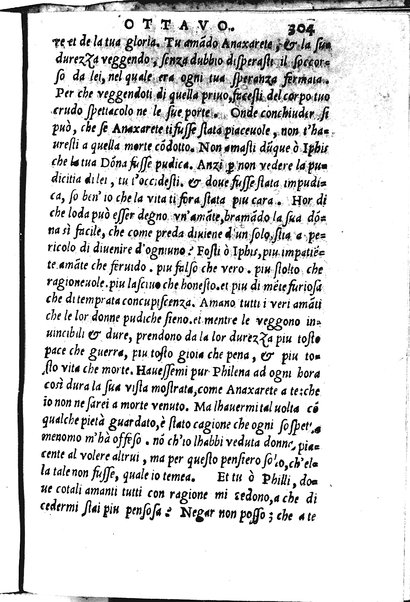 OTTAVO. 304
te et de la tua gloria. Tu amãdo Anaxarete, & la sua
durezza veggendo, senza dubbio disperasti il soccor-
so da lei, nel quale era ogni tua speranza fermata.
Per che veggendoti di quella priuo, facesti del corpo tuo
crudo spettacolo ne le sue porte. Onde conchiuder si
può, che se Anaxarete ti fusse stata piaceuole, non t'ha
uresti a quella morte cõdotto. Non amasti dũque ò Iphis
che la tua Dõna fusse pudica. Anzi ꝑ non vedere la pu-
dicitia di lei, tu t'occidesti. & doue fusse stata impudi-
ca, so ben'io che la vita ti fora stata piu cara. Hor di
che loda può esser degno vn'amãte, bramãdo la sua dõ-
na sì facile, che come preda diuiene d'un solo, stia a pe-
ricolo di diuenire d'ogniuno? Fosti ò Iphis, piu impatiẽ-
te amãte che feruido. piu falso che vero. piu stolto che
ragioneuole. piu lasciuo che honesto. et piu di mẽte furiosa
che di temprata concupiscenza. Amano tutti i veri amãti
che le lor donne pudiche sieno. et mentre le veggono in-
uincibili & dure, prendono da la lor durezza piu tosto
pace che guerra, piu tosto gioia che pena, & piu to-
sto vita che morte. Hauessemi pur Philena ad ogni hora
così dura la sua vista mostrata, come Anaxarete a te: che
io non ne sarei a morte venuto. Ma l'hauermi tal uolta cõ
qualche pietà guardato, è stato cagione che ogni sospet,
a menomo m'hà offeso. nõ ch'io l'habbi veduta donna, pia-
cente al volere altrui, ma per questo pensiero solo, ch'el-
la tale non fusse, quale io temea. Et tu ò Philli, do-
ue cotali amanti tutti con ragione mi sedono, a che di
cedermi stai piu pensosa? Negar non posso; che a te